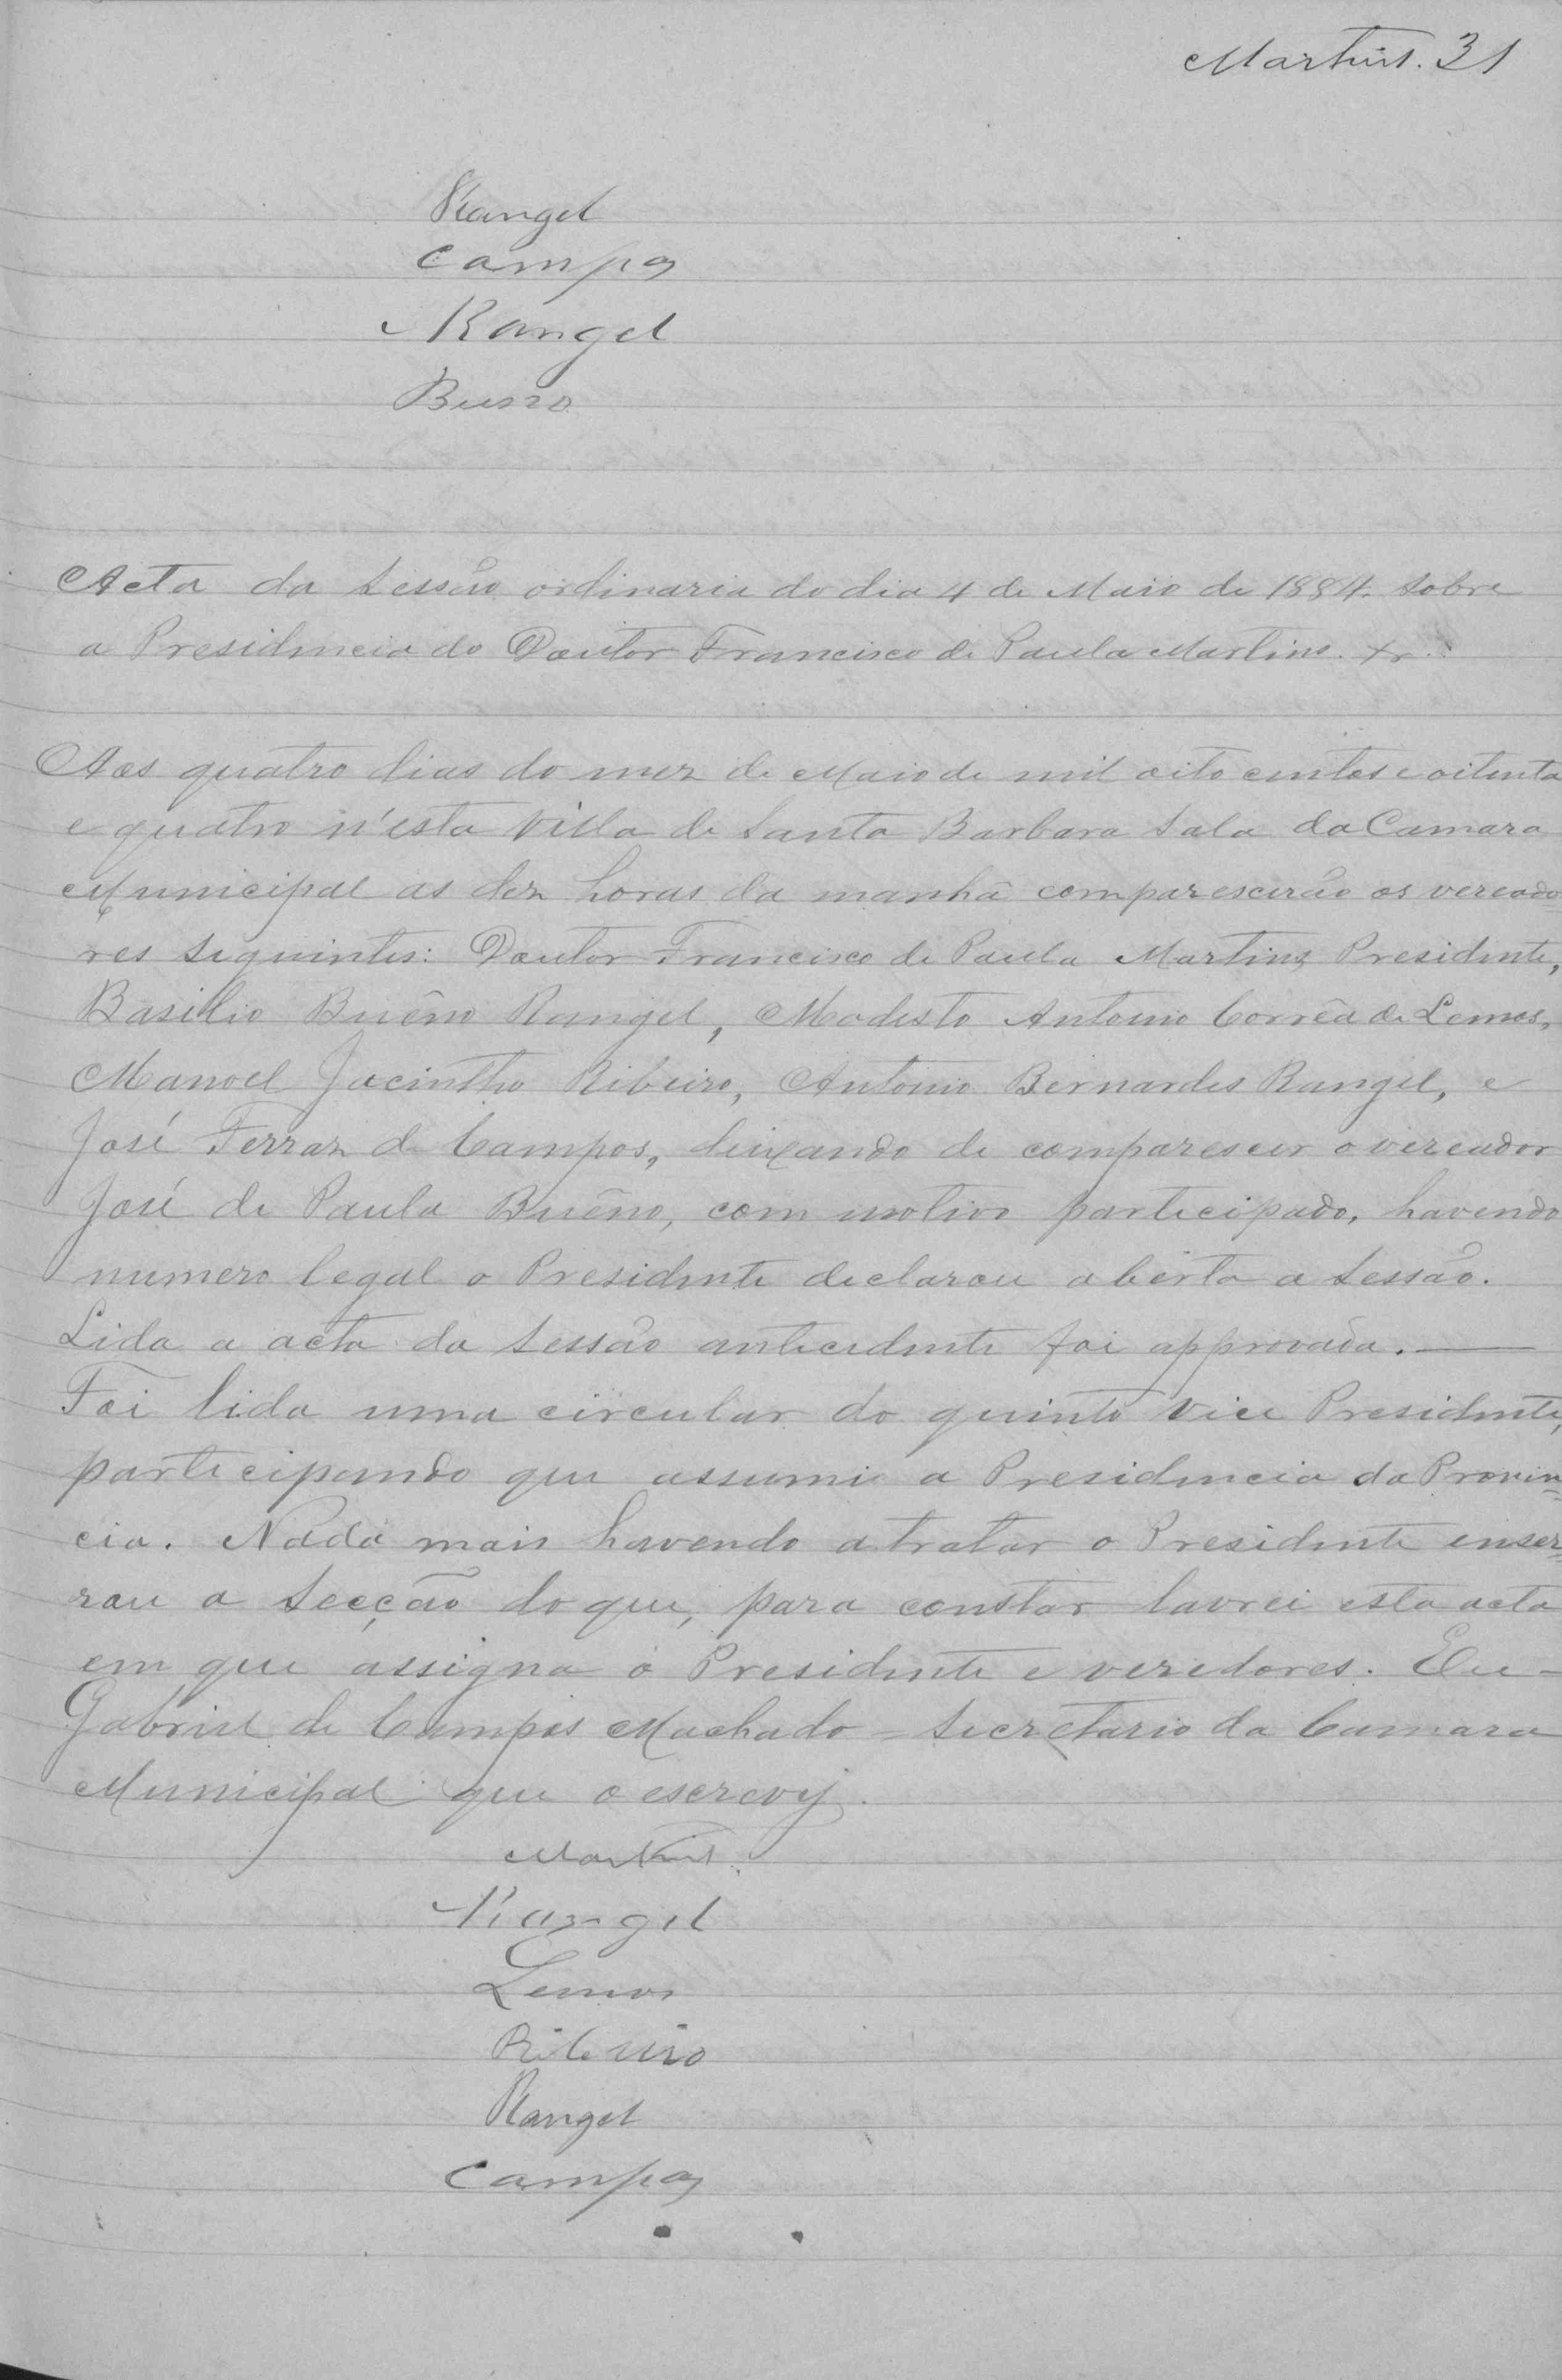 Martins. 31
Rangel
Campos
Rangel
Bueno
Acta da Sessão ordinaria do dia 4 de Maio de 1884. Sobre
a Presidencia do Doutor Francisco de Paula Martins.
Aos quatro dias do mez de Maio de mil oito centos e oitenta
e quatro n'esta Villa de Santa Barbara Sala da Camara
Municipal as dez horas da manhã comparescerão os vereado=
res seguintes: Doutor Francisco de Paula Martins Presidente,
Basilio Buêno Rangel, Modesto Antonio Corrêa de Lemos,
Manoel Jacintho Ribeiro, Antonio Bernardes Rangel, e
José Ferraz de Campos, deixando de comparescer o vereador
José de Paula Buêno, com motivo participado, havendo
numero legal o Presidente declarou aberta a Sessão.
Lida a acta da Sessão antecedente foi approvada.
Foi lida uma circular do quinto Vice Presidente,
participando que assumio a Presidencia da Provin=
cia. Nada mais havendo a tratar o Presidente enser=
rou a Secção do que, para constar lavrei esta acta
em que assigna o Presidente e veredores. Eu -
Gabriel de Campos Machado - Secretario da Camara
Municipal que o escrevy.
Martins.
Rangel
Lemos
Ribeiro
Rangel
Campos